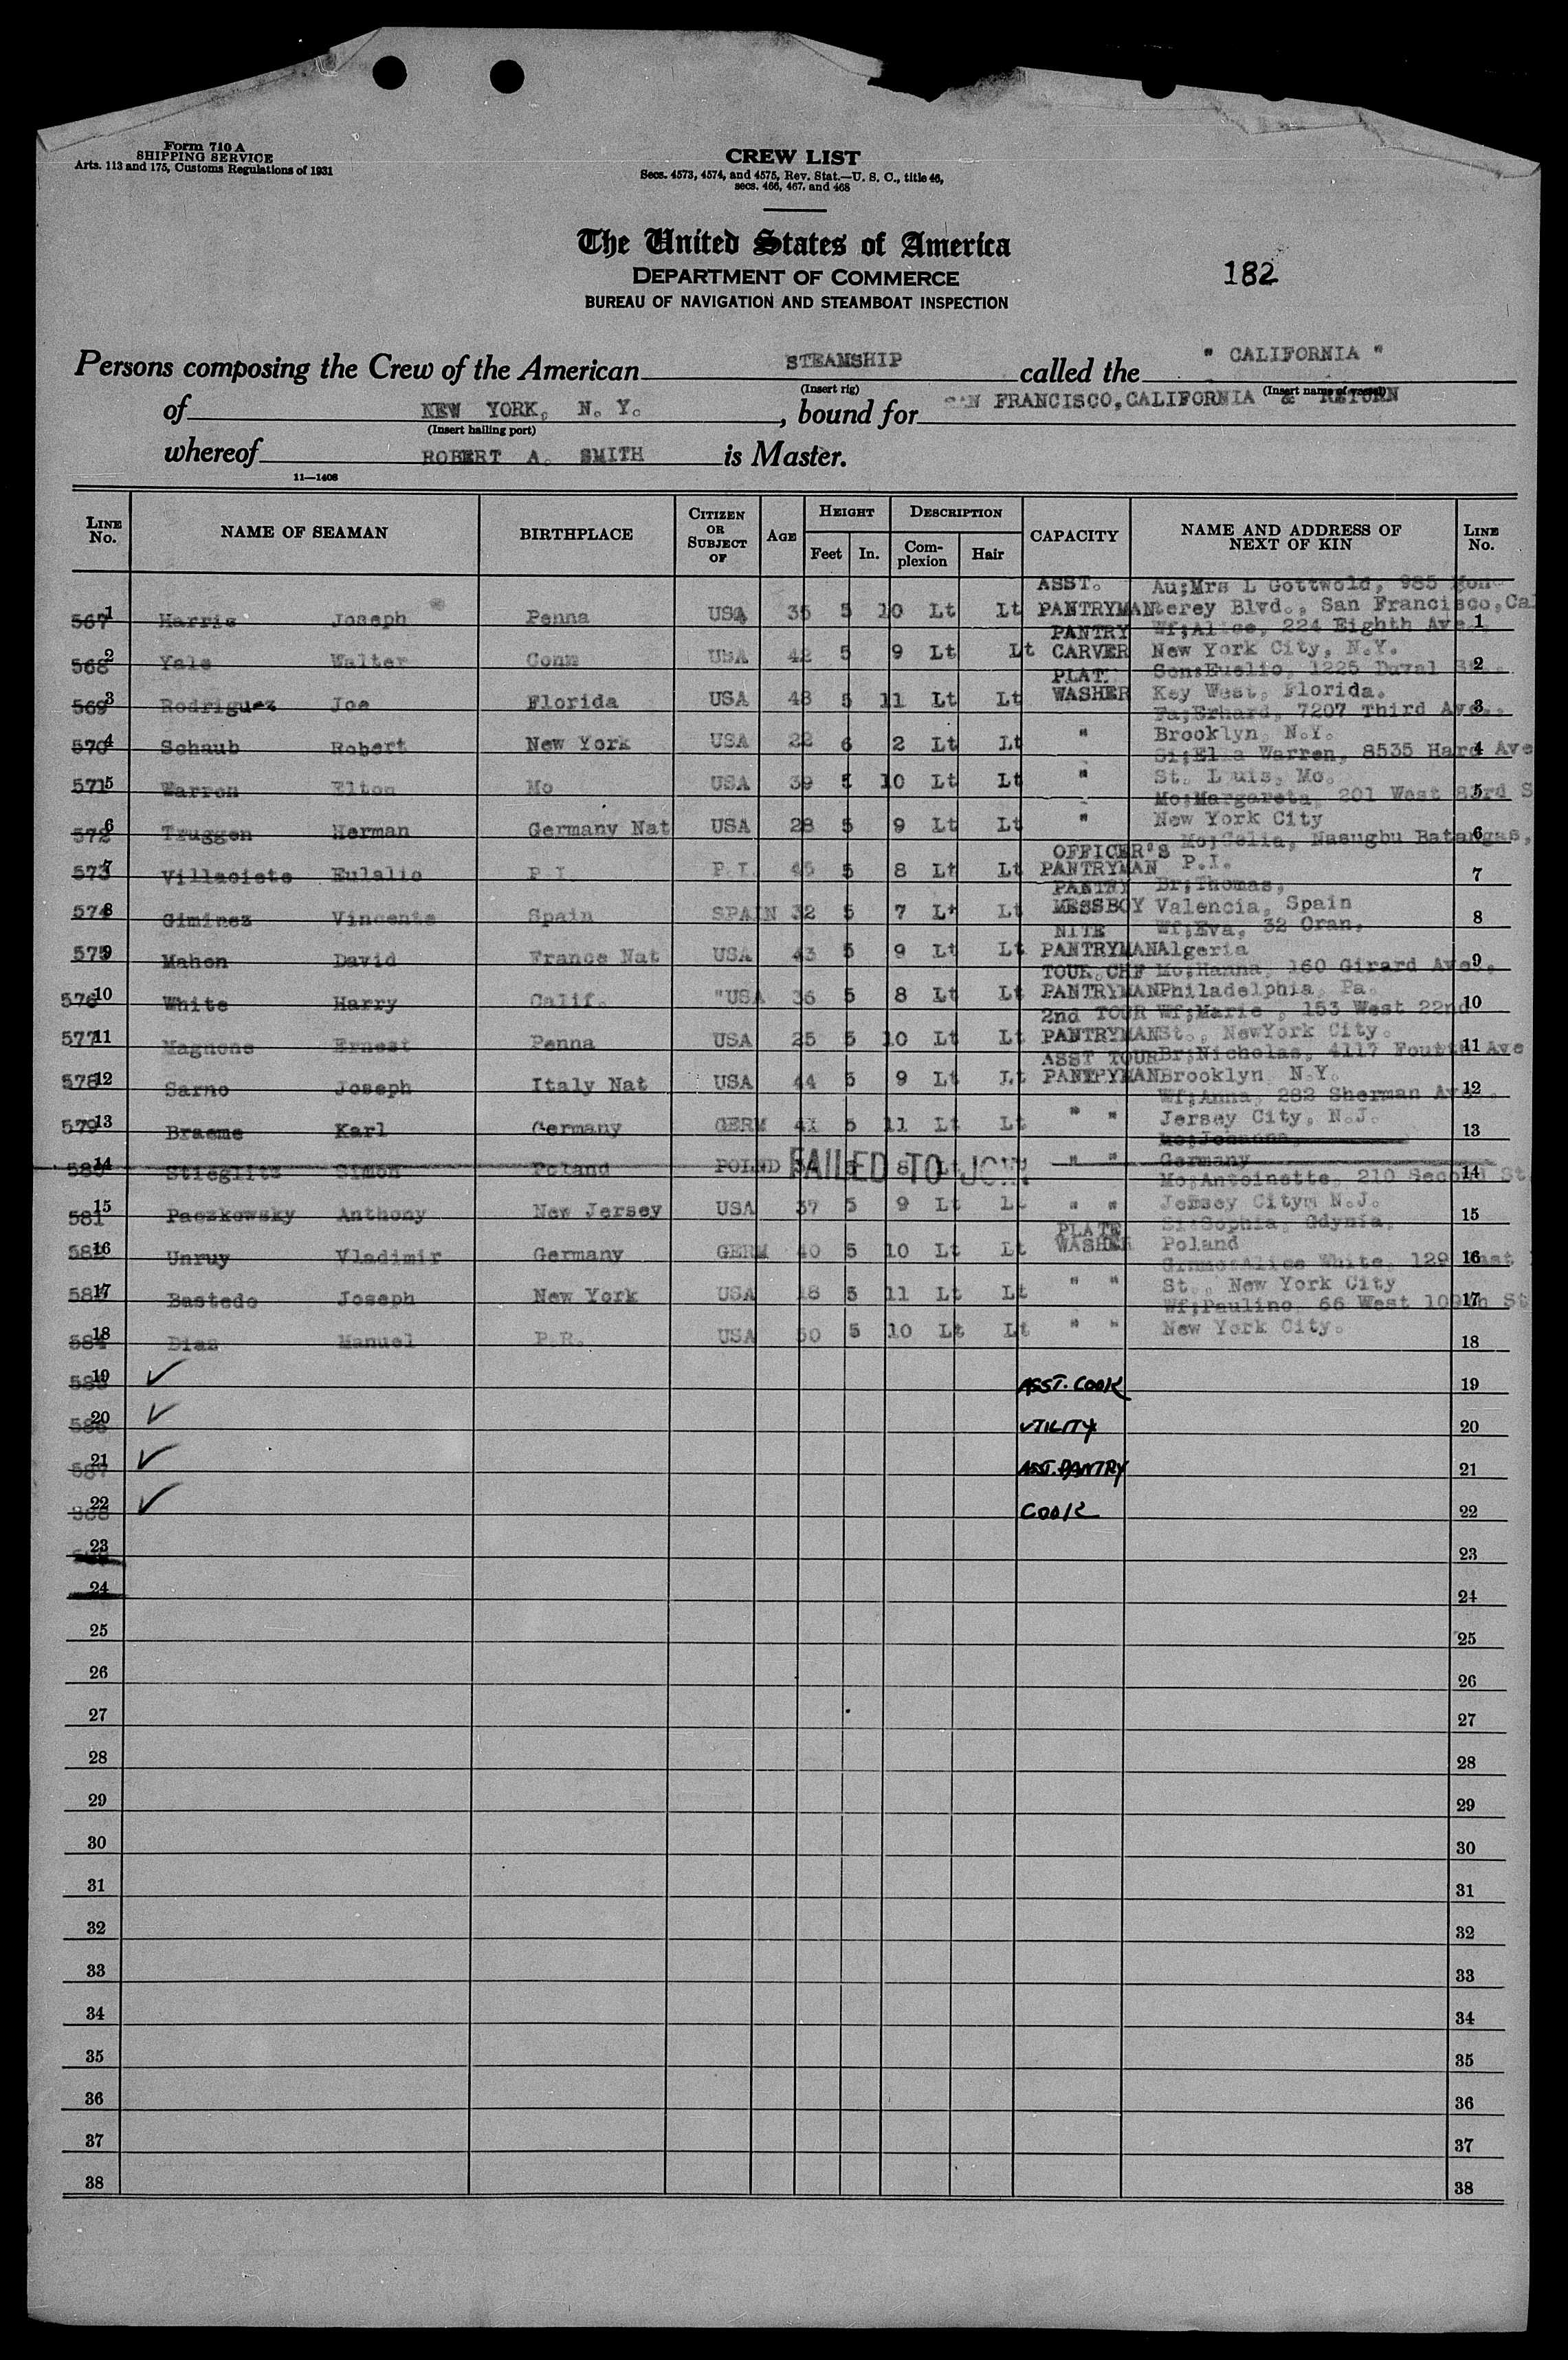 Form 710 A
SHIPPING SERVICE
Arts. 113 and 175, Customs Regulations of 1931
CREW LIST
Secs. 4573, 4574, and 4575, Rev. Stat.—U. S. C., title 46,
secs. 466, 467, and 468
The United States of America
DEPARTMENT OF COMMERCE
BUREAU OF NAVIGATION AND STEAMBOAT INSPECTION
182
Persons composing the Crew of the American STEAMSHIP called the " CALIFORNIA "
(Insert rig) (Insert name of vessel)
of NEW YORK, N. Y., bound for SAN FRANCISCO, CALIFORNIA & RETURN
(Insert hailing port)
whereof ROBERT A. SMITH is Master.
11—1408
LINE No. NAME OF SEAMAN BIRTHPLACE CITIZEN OR SUBJECT OF AGE HEIGHT Feet In. DESCRIPTION Complexion Hair CAPACITY NAME AND ADDRESS OF NEXT OF KIN LINE No.
567 1 Harris Joseph Penna USA 35 5 10 Lt Lt ASST. PANTRYMAN Au;Mrs L Gottwold, 985 Monterey Blvd., San Francisco, Cal 1
568 2 Yale Walter Conn USA 42 5 9 Lt Lt PANTRY CARVER Wf;Alice, 224 Eighth Ave. New York City, N.Y. 2
569 3 Rodriguez Joe Florida USA 48 5 11 Lt Lt PLAT. WASHER Son:Euelio, 1225 Duval St. Key West, Florida. 3
570 4 Schaub Robert New York USA 22 6 2 Lt Lt " Fa;Erhard, 7207 Third Ave., Brooklyn, N.Y. 4
571 5 Warren Elton Mo USA 39 5 10 Lt Lt " Si;Ella Warren, 8535 Hard Ave St. Louis, Mo. 5
572 6 Truggen Herman Germany Nat USA 28 5 9 Lt Lt " Mo;Margareta, 201 West 83rd S New York City 6
573 7 Villaciete Eulalio P.I. P.I. 45 5 8 Lt Lt OFFICER'S PANTRYMAN Mo;Celia, Nasugbu Batangas, P.I. 7
574 8 Giminez Vincente Spain SPAIN 32 5 7 Lt Lt PANTRY MESSBOY Br;Thomas, Valencia, Spain 8
575 9 Mahon David France Nat USA 43 5 9 Lt Lt NITE PANTRYMAN Wf;Eva, 32 Oran, Algeria 9
576 10 White Harry Calif. "USA 36 5 8 Lt Lt TOUR.CHF PANTRYMAN Mo;Hanna, 160 Girard Ave., Philadelphia, Pa. 10
577 11 Magnone Ernest Penna USA 25 5 10 Lt Lt 2nd TOUR PANTRYMAN Wf;Marie, 153 West 22nd St., NewYork City. 11
578 12 Sarno Joseph Italy Nat USA 44 5 9 Lt Lt ASST TOUR PANTPYMAN Br;Nicholas, 4117 Fourth Ave Brooklyn N.Y. 12
579 13 Braeme Karl Germany GERM 41 5 11 Lt Lt " " Wf;Anna, 282 Sherman Ave., Jersey City, N.J. 13
580 14 Stieglitz Simon Poland POLND 5 8 Lt FAILED TO JOIN " " Mo;Johanna, Germany 14
581 15 Paczkowsky Anthony New Jersey USA 37 5 9 Lt Lt " " Mo;Antoinette, 210 Second St Jersey City, N.J. 15
582 16 Unruy Vladimir Germany GERM 40 5 10 Lt Lt PLATE WASHER Si:Sophia, Gdynia, Poland 16
583 17 Bastedo Joseph New York USA 18 5 11 Lt Lt " " Alice White, 129 East St., New York City 17
584 18 Diaz Manuel P.R. USA 30 5 10 Lt Lt " " Wf;Pauline, 66 West 109th St New York City. 18
585 19 ✓ ASST. COOK 19
586 20 ✓ UTILITY 20
587 21 ✓ ASST. PANTRY 21
588 22 ✓ COOK 22
23 23
24 24
25 25
26 26
27 27
28 28
29 29
30 30
31 31
32 32
33 33
34 34
35 35
36 36
37 37
38 38